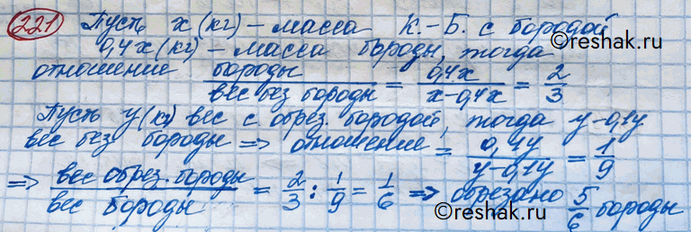 221 Пусть x (кг) – масса К.-Б. с бородой
0,4x (кг) – масса бороды, тогда ©reshak.ru
отношение бороды / вес без бороды = 0,4x / x-0,4x = 2/3
Пусть y (кг) вес с обрез. бородой, тогда y-0,1y
вес без бороды => отношение = 0,1y / y-0,1y = 1/9
=> вес обрез. бороды / вес бороды = 2/3 : 1/9 = 1/6 => обрезано 5/6 бороды
©reshak.ru